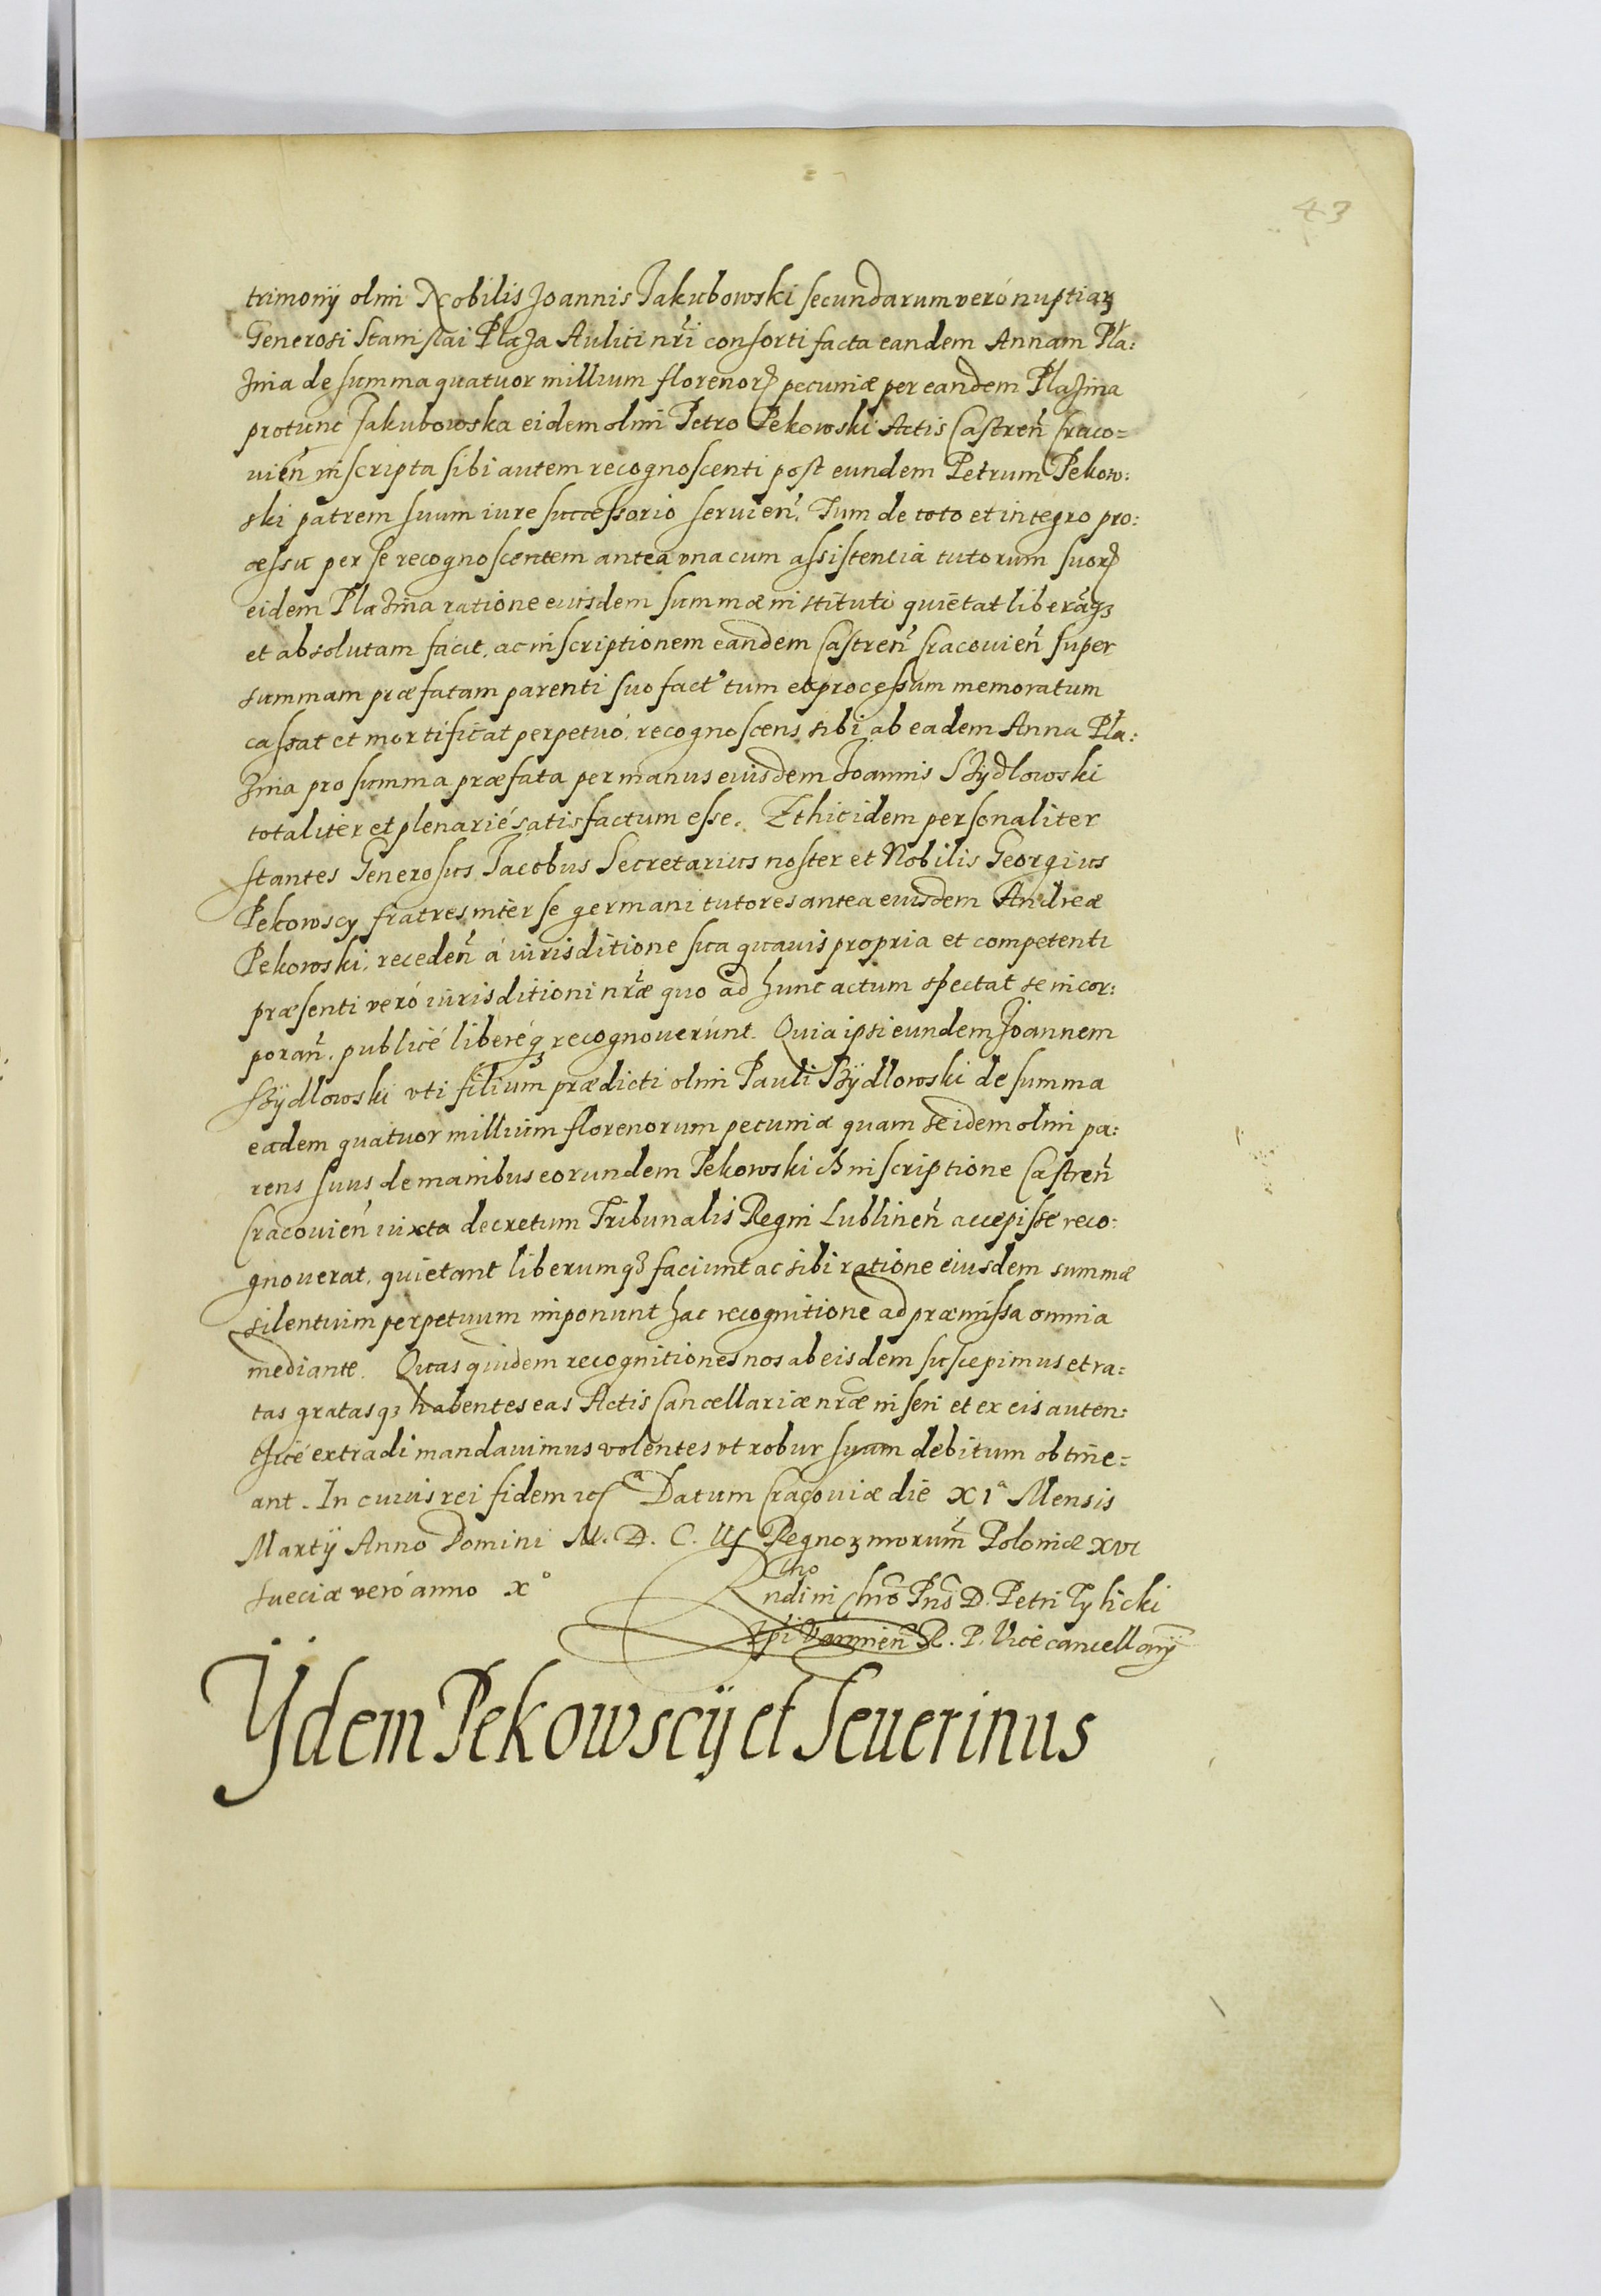 43
trimonij olim Nobilis Joannis Jakubowski secundarum veró nuptiaꝝ
Generosi Stanislai Plaza Aulici nr̃i consorti facta eandem Annam Pla:
zina de summa quatuor millium florenorꝝ pecuniæ per eandem Plazina
protunc Jakubowska eidem olim Petro Pekowski Actis Castren̄ Craco=
uien̄ inscripta sibi autem recognoscenti post eundem Petrum Pekow:
ski patrem suum iure successorio seruien̄. Tum de toto et integro pro:
cessu per se recognoscentem antea vna cum assistentia tutorum suorꝝ
eidem Plazina ratione eiusdem summæ instituto quietat liberāqꝫ
et absolutam facit, ac inscriptionem eandem Castren̄ Cracouien̄ super
summam præfatam parenti suo fact' tum et processum memoratum
cassat et mortificat perpetuó, recognoscens sibi ab eadem Anna Pla:
zina pro summa præfata per manus eiusdem Joannis Bÿdlowski
totaliter et plenarié satisfactum esse. Et hic idem personaliter
stantes Generosus Jacobus Secretarius noster et Nobilis Georgius
Pekowscy fratres inter se germani tutores antea eiusdem Andreæ
Pekowski, receden̄ á iurisditione sua quauis propria et competenti
præsenti veró iurisditioni nr̃æ quo ad hunc actum spectat se incor:
poran̄, publicé liberéqꝫ recognouerunt. Quia ipsi eundem Joannem
Bÿdlowski vti filium prædicti olim Pauli Bÿdlowski de summa
eadem quatuor millium florenorum pecuniæ quam se idem olim pa:
rens suus de manibus eorundem Pekowskich inscriptione Castren̄
Cracouien̄ iuxta decretum Tribunalis Regni Lublinen̄ accepisse reco:
gnouerat, quietant liberumqꝫ faciunt ac sibi ratione eiusdem summæ
silentium perpetuum imponunt hac recognitione ad præmissa omnia
mediante. Quas quidem recognitiones nos ab eisdem suscepimus et ra:
tas gratasqꝫ habentes eas Actis Cancellariæ nr̃æ inseri et ex eis auten:
thicé extradi mandauimus volentes vt robur suum debitum obtine=
ant. In cuius rei fidem Datum Cracouiæ die XIª Mensis
Martij Anno Domini M. D. C. III Regnoꝝ nrorum̄ Poloniæ XVI
Sueciæ veró anno Xº
ndi in Chro Pris D. Petri Tylicki
Epi Varmien̄ R. P. Vicecancellarij
Ijdem Pekowscij et Seuerinus